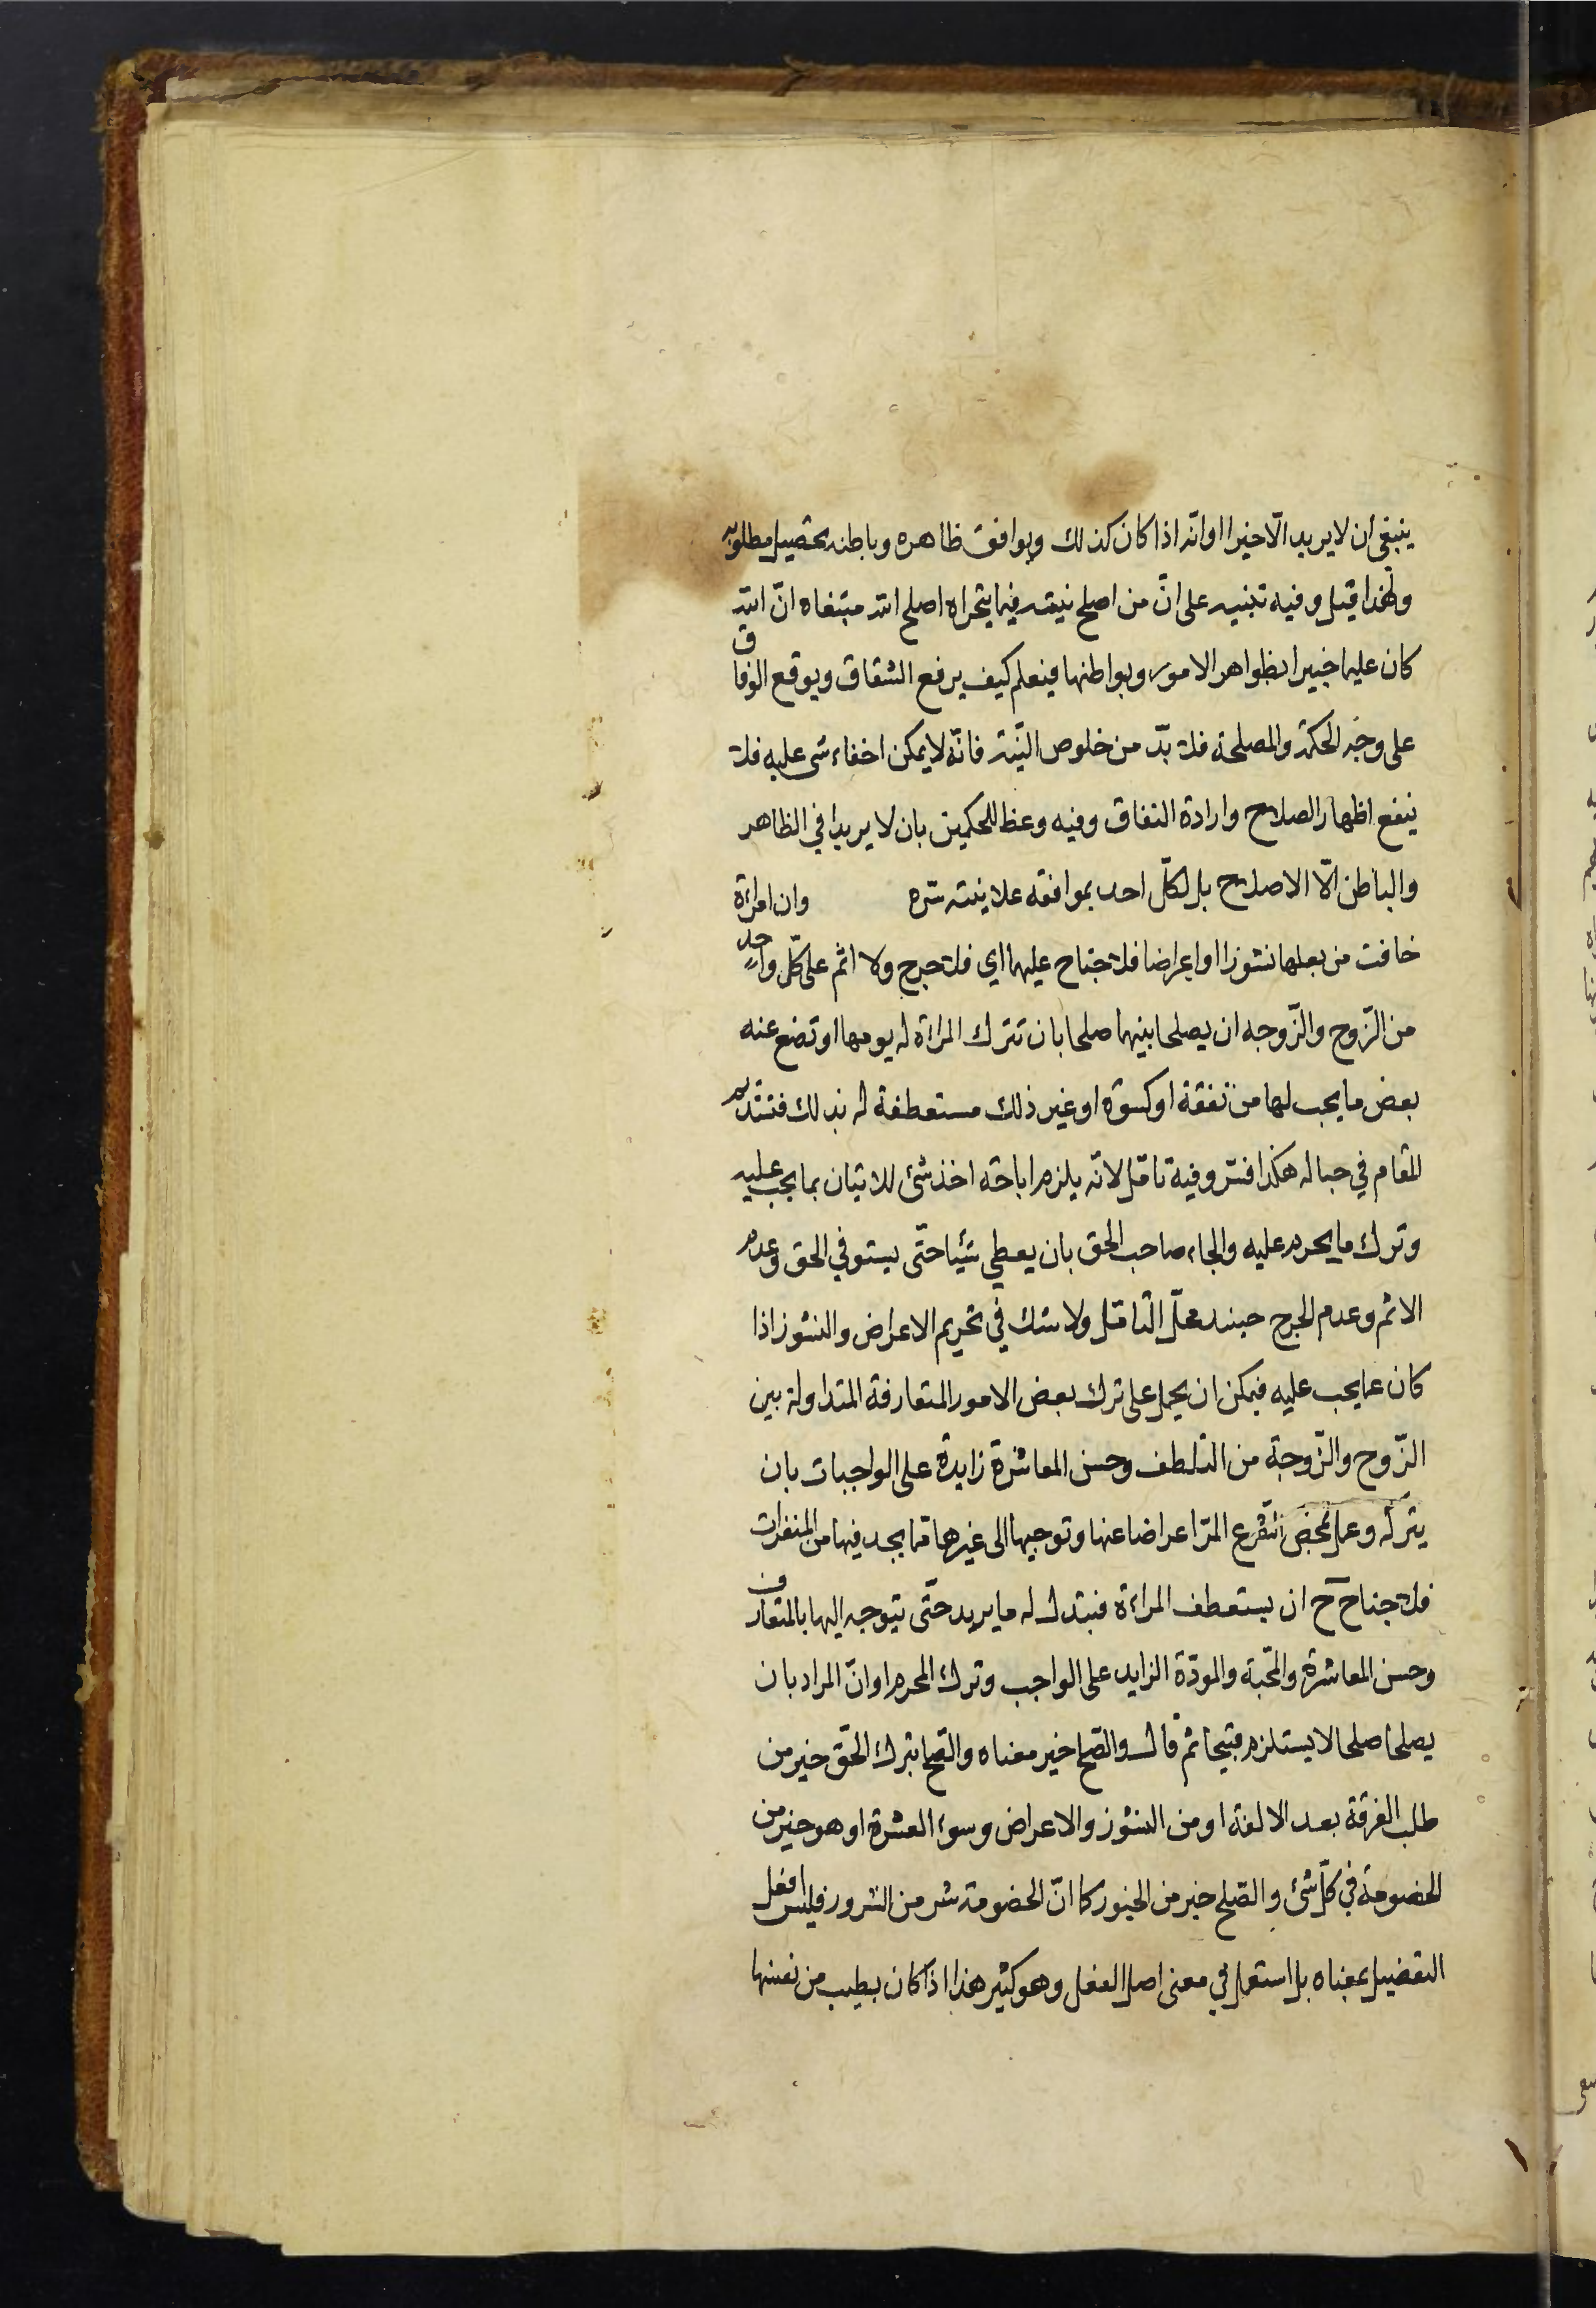 ينبغي ان لا يريد الّا خيرا او انّه اذا كان كذلك ويوافق ظاهره وباطنه يحصيل مطلوبه
ولهذا قيل وفيه تنبيه على انّ من اصلح نيته فيما يتحراه اصلح الله مبتغاه انّ الله
كان عليما خبيرا بظواهر الامور وبواطنها فيعلم كيف يرفع الشقاق ويوقع الوفاق
على وجه الحكمة والمصلحة فلا بدّ من خلوص النّية فانّه لا يمكن اخفاء شئ عليه فلا
ينفع اظهار الصلاح وارادة النفاق وفيه وعظ للحكمين بان لا يريدا في الظاهر
والباطن الّا الاصلاح بل لكلّ احد بموافقه علانيته سّره وان امراءة
خافت من بعلها نشوزا او اعراضا فلا جناح عليهما اي فلا حرج ولا اثم على كلّ واحد
من الزّوج والزّوجه ان يصلحا بينهما صلحا بان تترك المراءة له يومها او تضع عنه
بعض ما يجب لها من نفقة او كسوة او غير ذلك مستعطفة له بذلك فتستديم
المقام في حباله هكذا فسّر وفيه تامّل لانّه يلزم اباحة اخذ شئ للاتيان بما يجب عليه
وترك ما يحرم عليه والجاء صاحب الحق بان يعطي شيئا حتّى يستوفي الحق وعدم
الاثم وعدم الحرج حينئذ محلّ التامّل ولا شك في تحريم الاعراض والنشوز اذا
كان عما يجب عليه فيمكن ان يحمل على ترك بعض الامور المتعارفة المتداولة بين
الزّوج والزّوجة من التلطف وحسن المعاشرة زايدة على الواجبات بان
يتركه وعمل بمحض الشرع المرّ اعراضا عنها وتوجيها الى غيرها ممّا يجد فيها من المنفرات
فلا جناح ح ان يستعطف المراءة فتبتدل له ما يريد حتّى يتوجه اليها بالمتعارف
وحسن المعاشرة والمحّبة والمودّة الزايد على الواجب وترك المحرم او انّ المراد بان
يصلحا صلحا لا يستلزم قبيحا ثم قال والصّلح خير معناه والصّلح بترك الحقّ خير من
طلب الفرقة بعد الالفة او من النشوز والاعراض وسوء العشرة او هو خير من
الخصومة في كلّ شئ والصّلح خير من الخيور كما انّ الخصومة شر من الشرور فليس افعل
التفضيل بمعناه بل استعمل في معنى اصل الفعل وهو كثير هذا اذا كان بطيب من نفسها